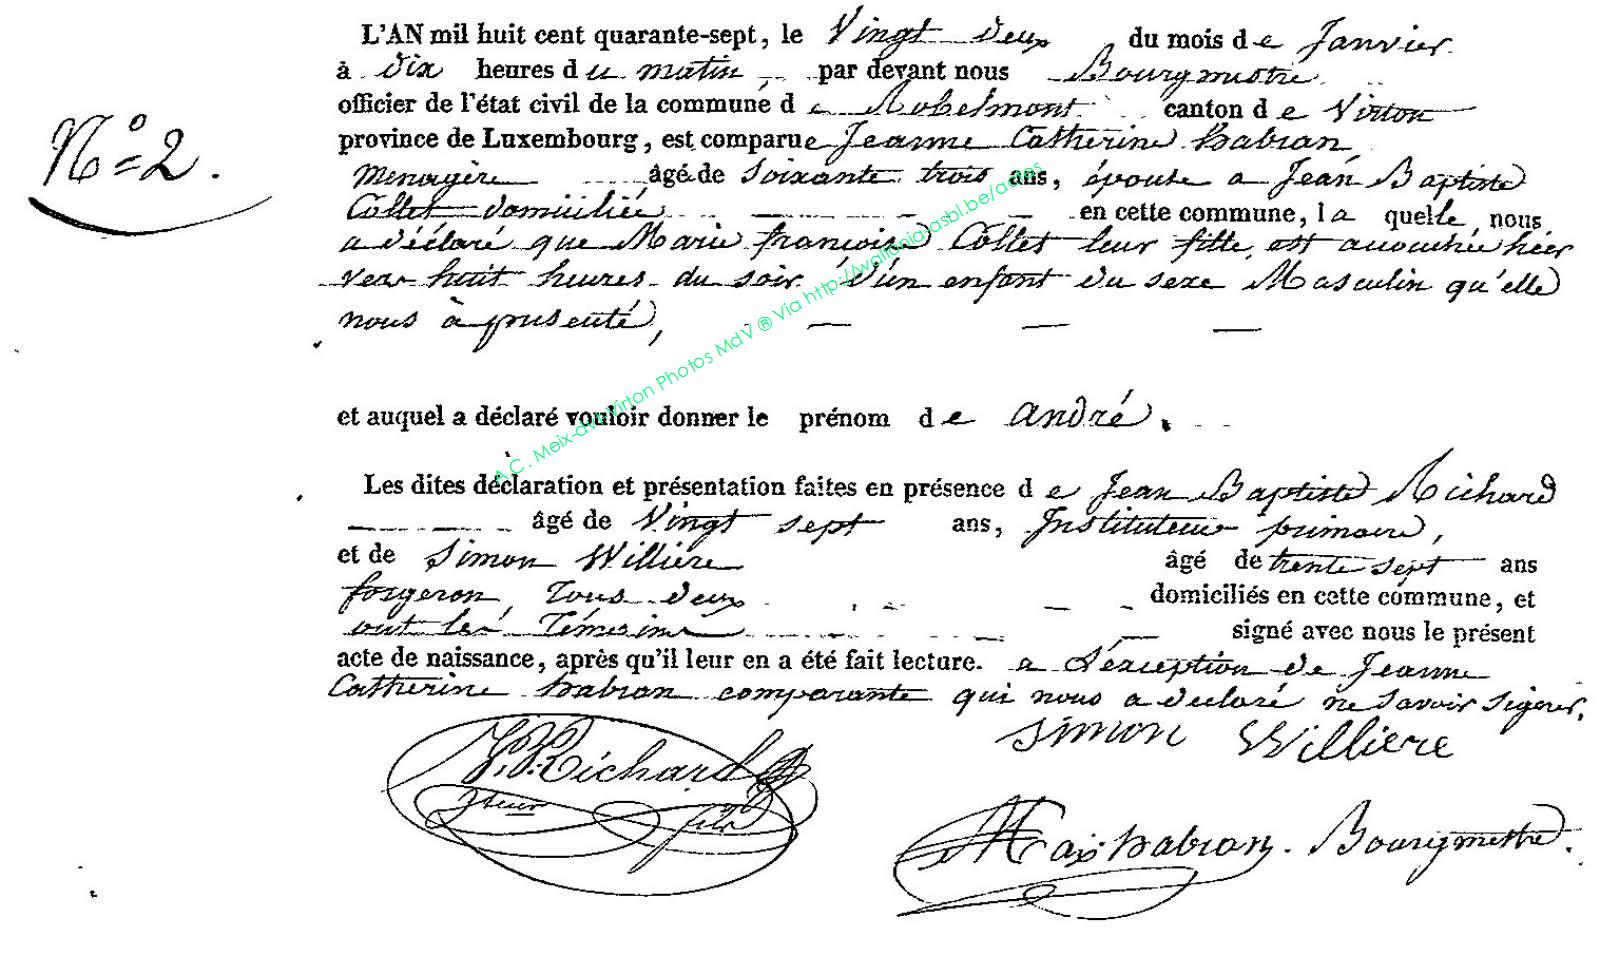 L'AN mil huit cent quarante-sept, le Vingt deux du mois de Janvier
à dix heures du matin par devant nous Bourgmestre
officier de l'état civil de la commune de Robelmont canton de Virton
N° 2.
province de Luxembourg, est comparue Jeanne Catherine habran
Menagère âgé de soixante trois ans, épouse a Jean Baptiste
Collet domiciliée en cette commune, la quelle, nous
a déclaré que Marie françoise Collet leur fille, est accouchée hier
vers huit heures du soir d'un enfant du sexe Masculin qu'elle
nous à presenté,
et auquel a déclaré vouloir donner le prénom de andré.
Les dites déclaration et présentation faites en présence de Jean Baptiste Richard
âgé de Vingt sept ans, Instituteur primaire,
et de Simon Willière âgé de trente sept ans
forgeron, Tous deux domiciliés en cette commune, et
ont les Témoins signé avec nous le présent
acte de naissance, après qu'il leur en a été fait lecture. a L'exception de Jeanne
Catherine habran comparante qui nous a declaré ne savoir signer.
Simon Williere
J.B. Richard
fils
habran. Bourgmestre.
A.C. Meix-dvt-Virton Photos MdV ® Via http://wallonia-asbl.be/actes